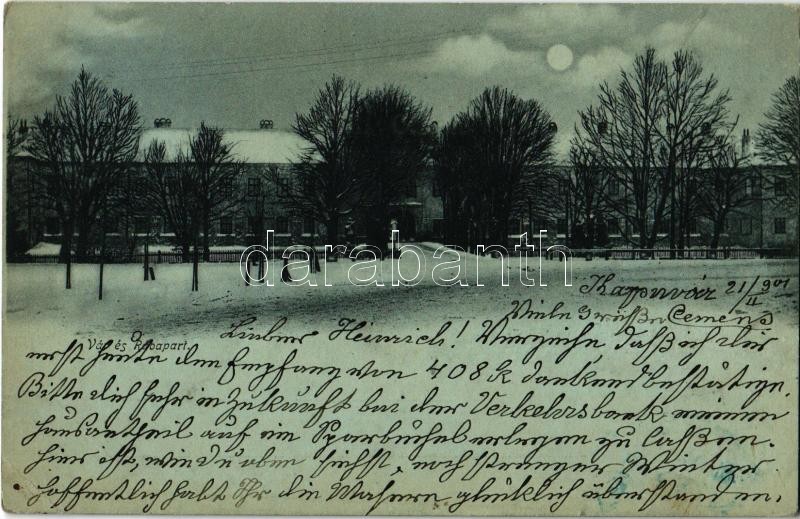 darabanth.com
Kapuvár 21/II 901
Vár és Rábapart.
Viele Grüße Cemens
Lieber Heinrich! Verzeihe daß ich dir
erst heute den Empfang von 408 K dankend bestätige.
Bitte dich sehr in Zukunft bei der Verkehrsbank meinen
Hausantheil auf ein Sparbuchel erlegen zu laßen.
Hier ist, wie du oben siehst, noch strenger Winter
hoffentlich habt Ihr die Masern glücklich überstanden.